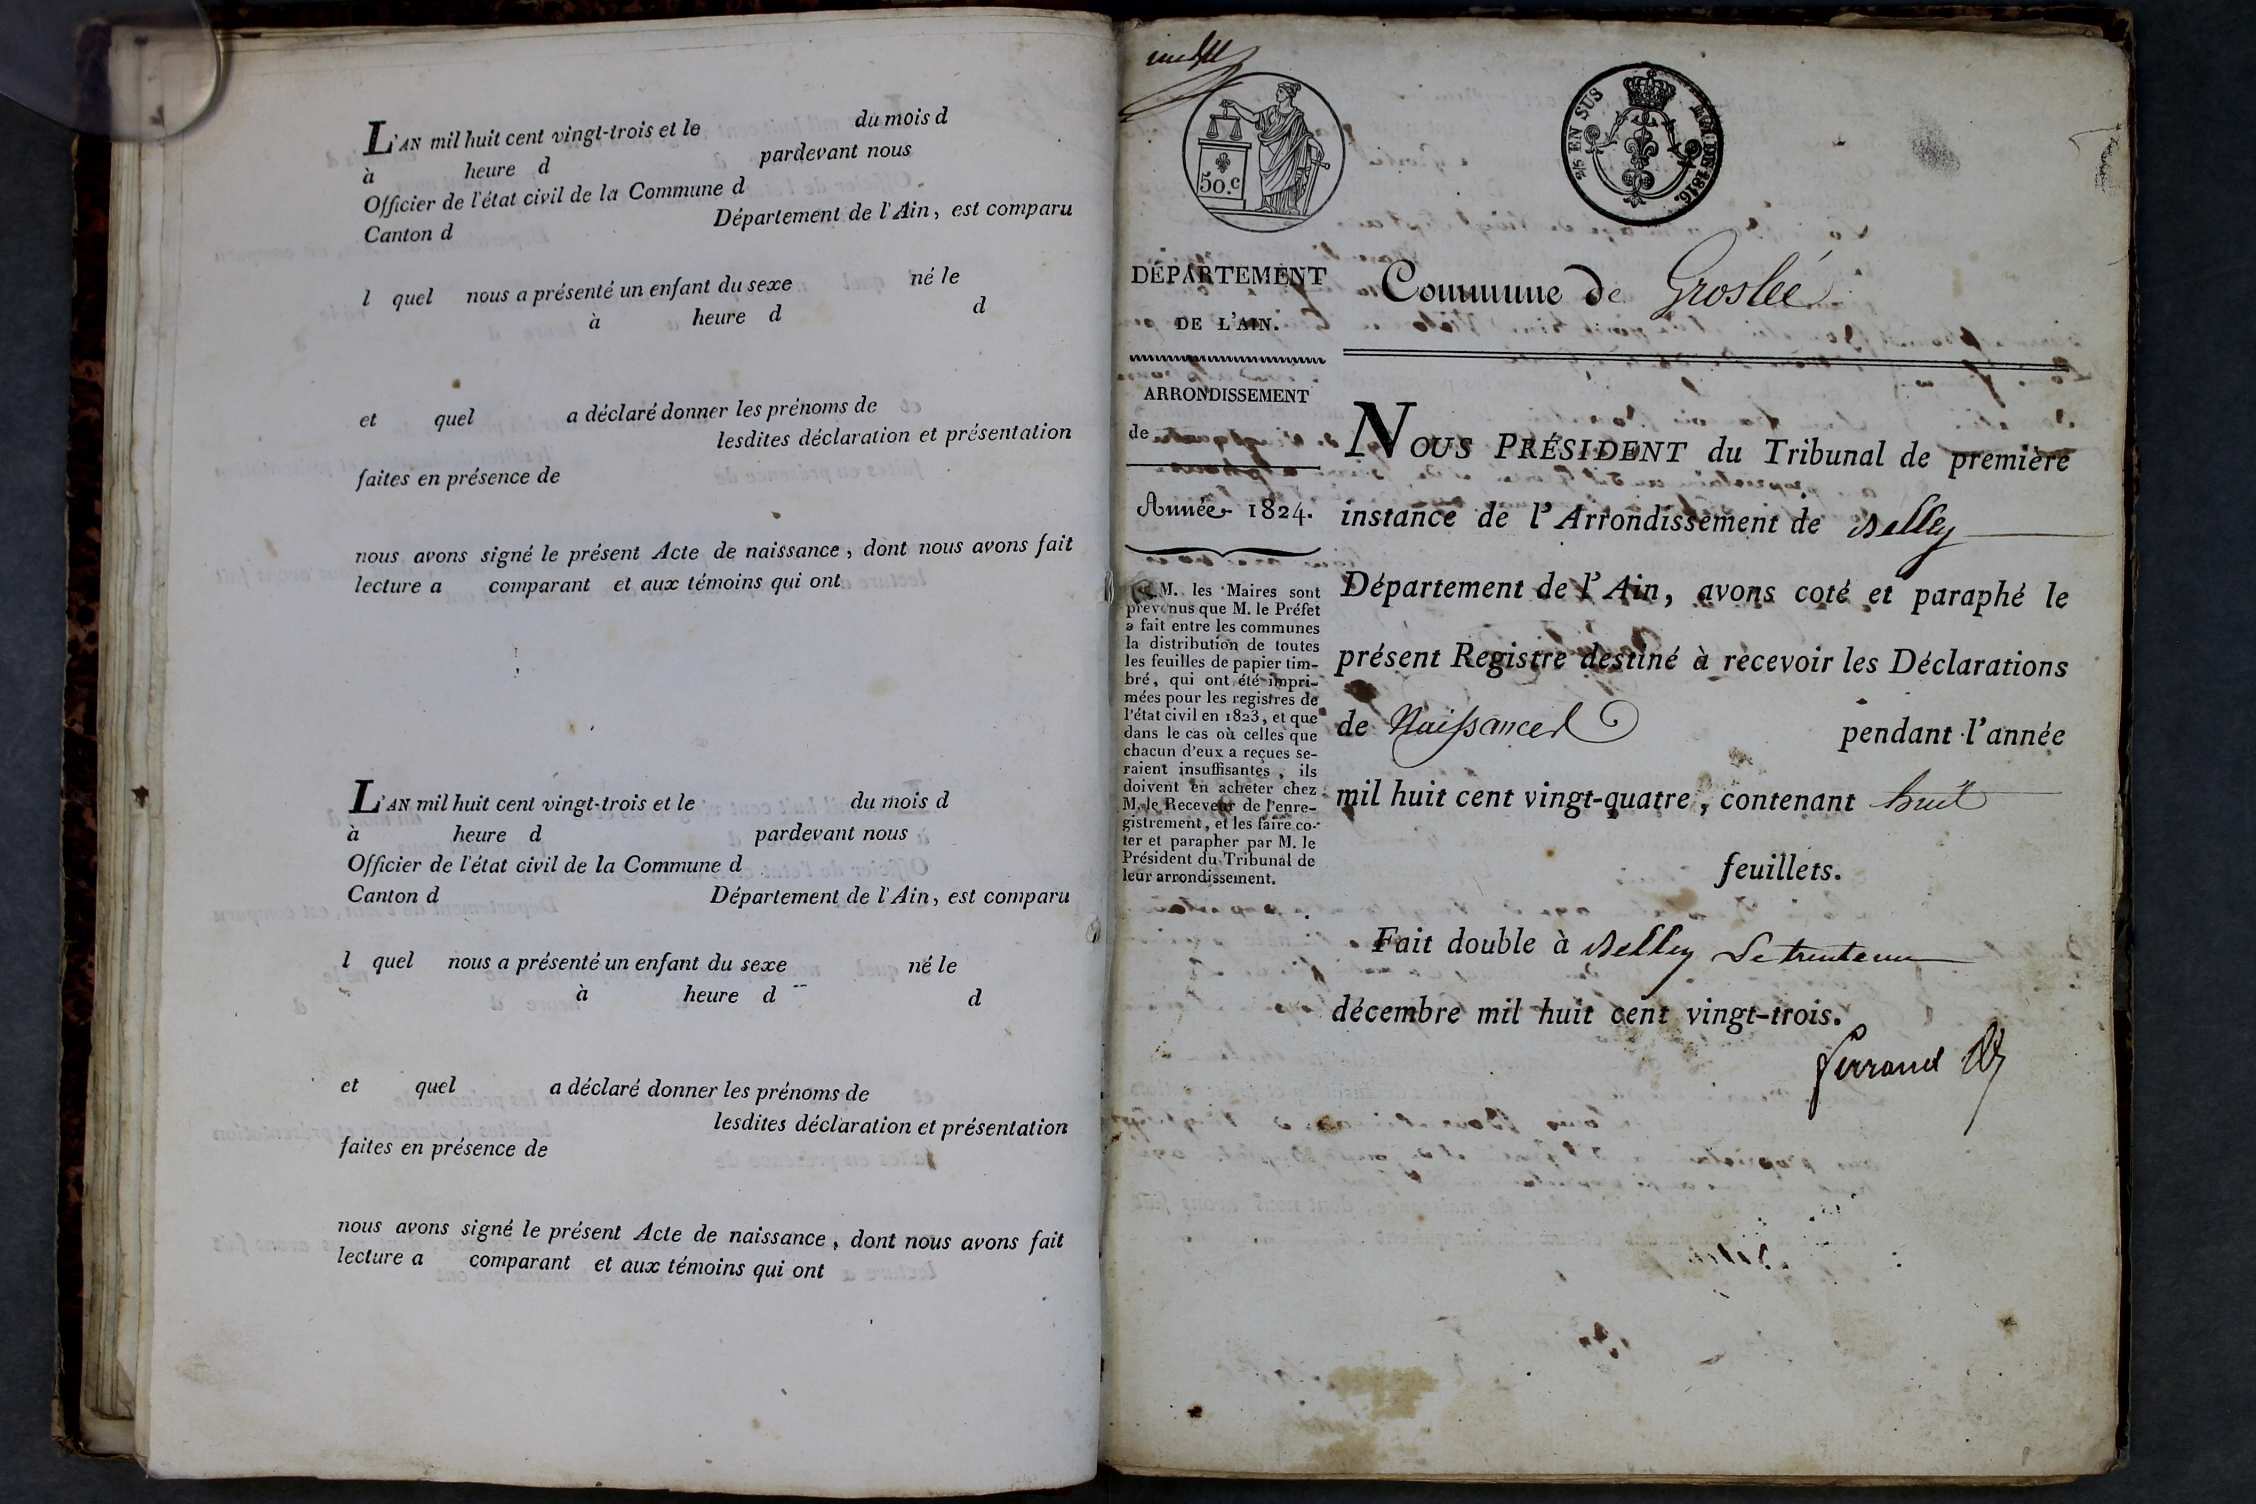 L'AN mil huit cent vingt-trois et le du mois d
à heure d pardevant nous
Officier de l'état civil de la Commune d
Canton d Département de l'Ain, est comparu
l quel nous a présenté un enfant du sexe né le
à heure d d
et quel a déclaré donner les prénoms de
lesdites déclaration et présentation
faites en présence de
nous avons signé le présent Acte de naissance, dont nous avons fait
lecture a comparant et aux témoins qui ont
L'AN mil huit cent vingt-trois et le du mois d
à heure d pardevant nous
Officier de l'état civil de la Commune d
Canton d Département de l'Ain, est comparu
l quel nous a présenté un enfant du sexe né le
à heure d d
et quel a déclaré donner les prénoms de
lesdites déclaration et présentation
faites en présence de
nous avons signé le présent Acte de naissance, dont nous avons fait
lecture a comparant et aux témoins qui ont
50.c
2/5 EN SUS LOI DE 1816.
DÉPARTEMENT
DE L'AIN.
ARRONDISSEMENT
de
Année 1824.
MM. les Maires sont
prévenus que M. le Préfet
a fait entre les communes
la distribution de toutes
les feuilles de papier tim-
bré, qui ont été impri-
mées pour les registres de
l'état civil en 1823, et que
dans le cas où celles que
chacun d'eux a reçues se-
raient insuffisantes, ils
doivent en acheter chez
M. le Receveur de l'enre-
gistrement, et les faire co-
ter et parapher par M. le
Président du Tribunal de
leur arrondissement.
Commune de Groslée
NOUS PRÉSIDENT du Tribunal de première
instance de l'Arrondissement de Belley
Département de l'Ain, avons coté et paraphé le
présent Registre destiné à recevoir les Déclarations
de Naissances pendant l'année
mil huit cent vingt-quatre, contenant huit
feuillets.
Fait double à Belley Le trente un
décembre mil huit cent vingt-trois.
Ferrand